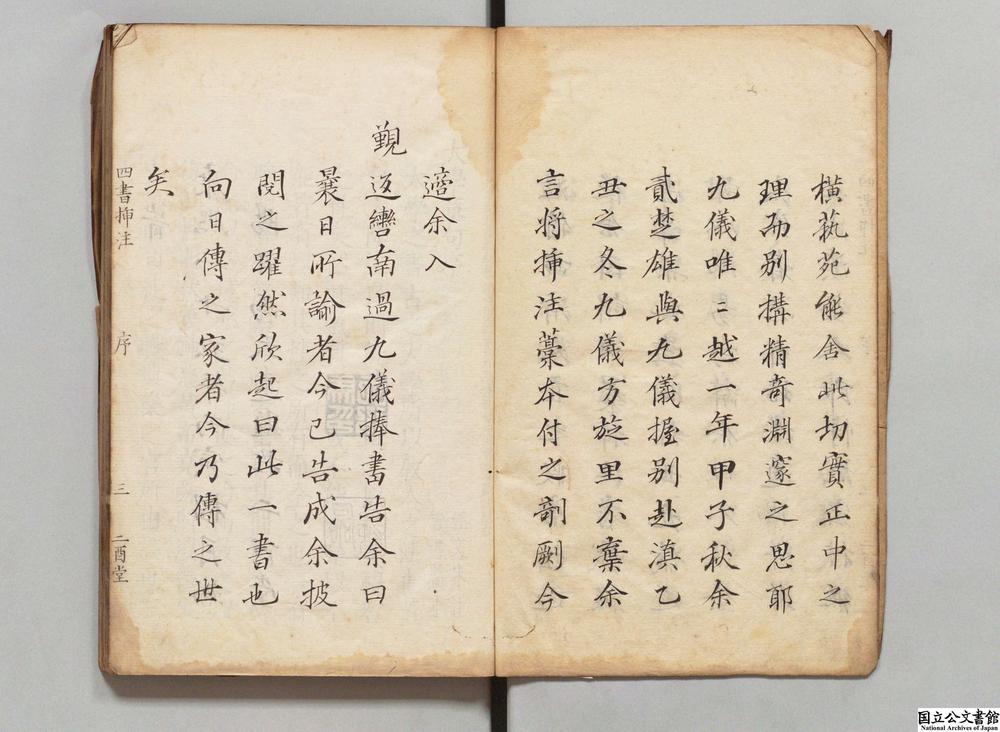 橫藝苑能舍此切實正中之
理而别搆精竒淵邃之思耶
九儀唯〻越一年甲子秋余
貳楚雄與九儀握别赴滇乙
丑之冬九儀方旋里不棄余
言將揷注藁本付之剞劂今
適余入
覲返轡南過九儀捧書告余曰
曩日所諭者今已告成余披
閱之躍然欣起曰此一書也
向日傳之家者今乃傳之世
矣
四書揷注 序 三 二酉堂
国立公文書館
National Archives of Japan